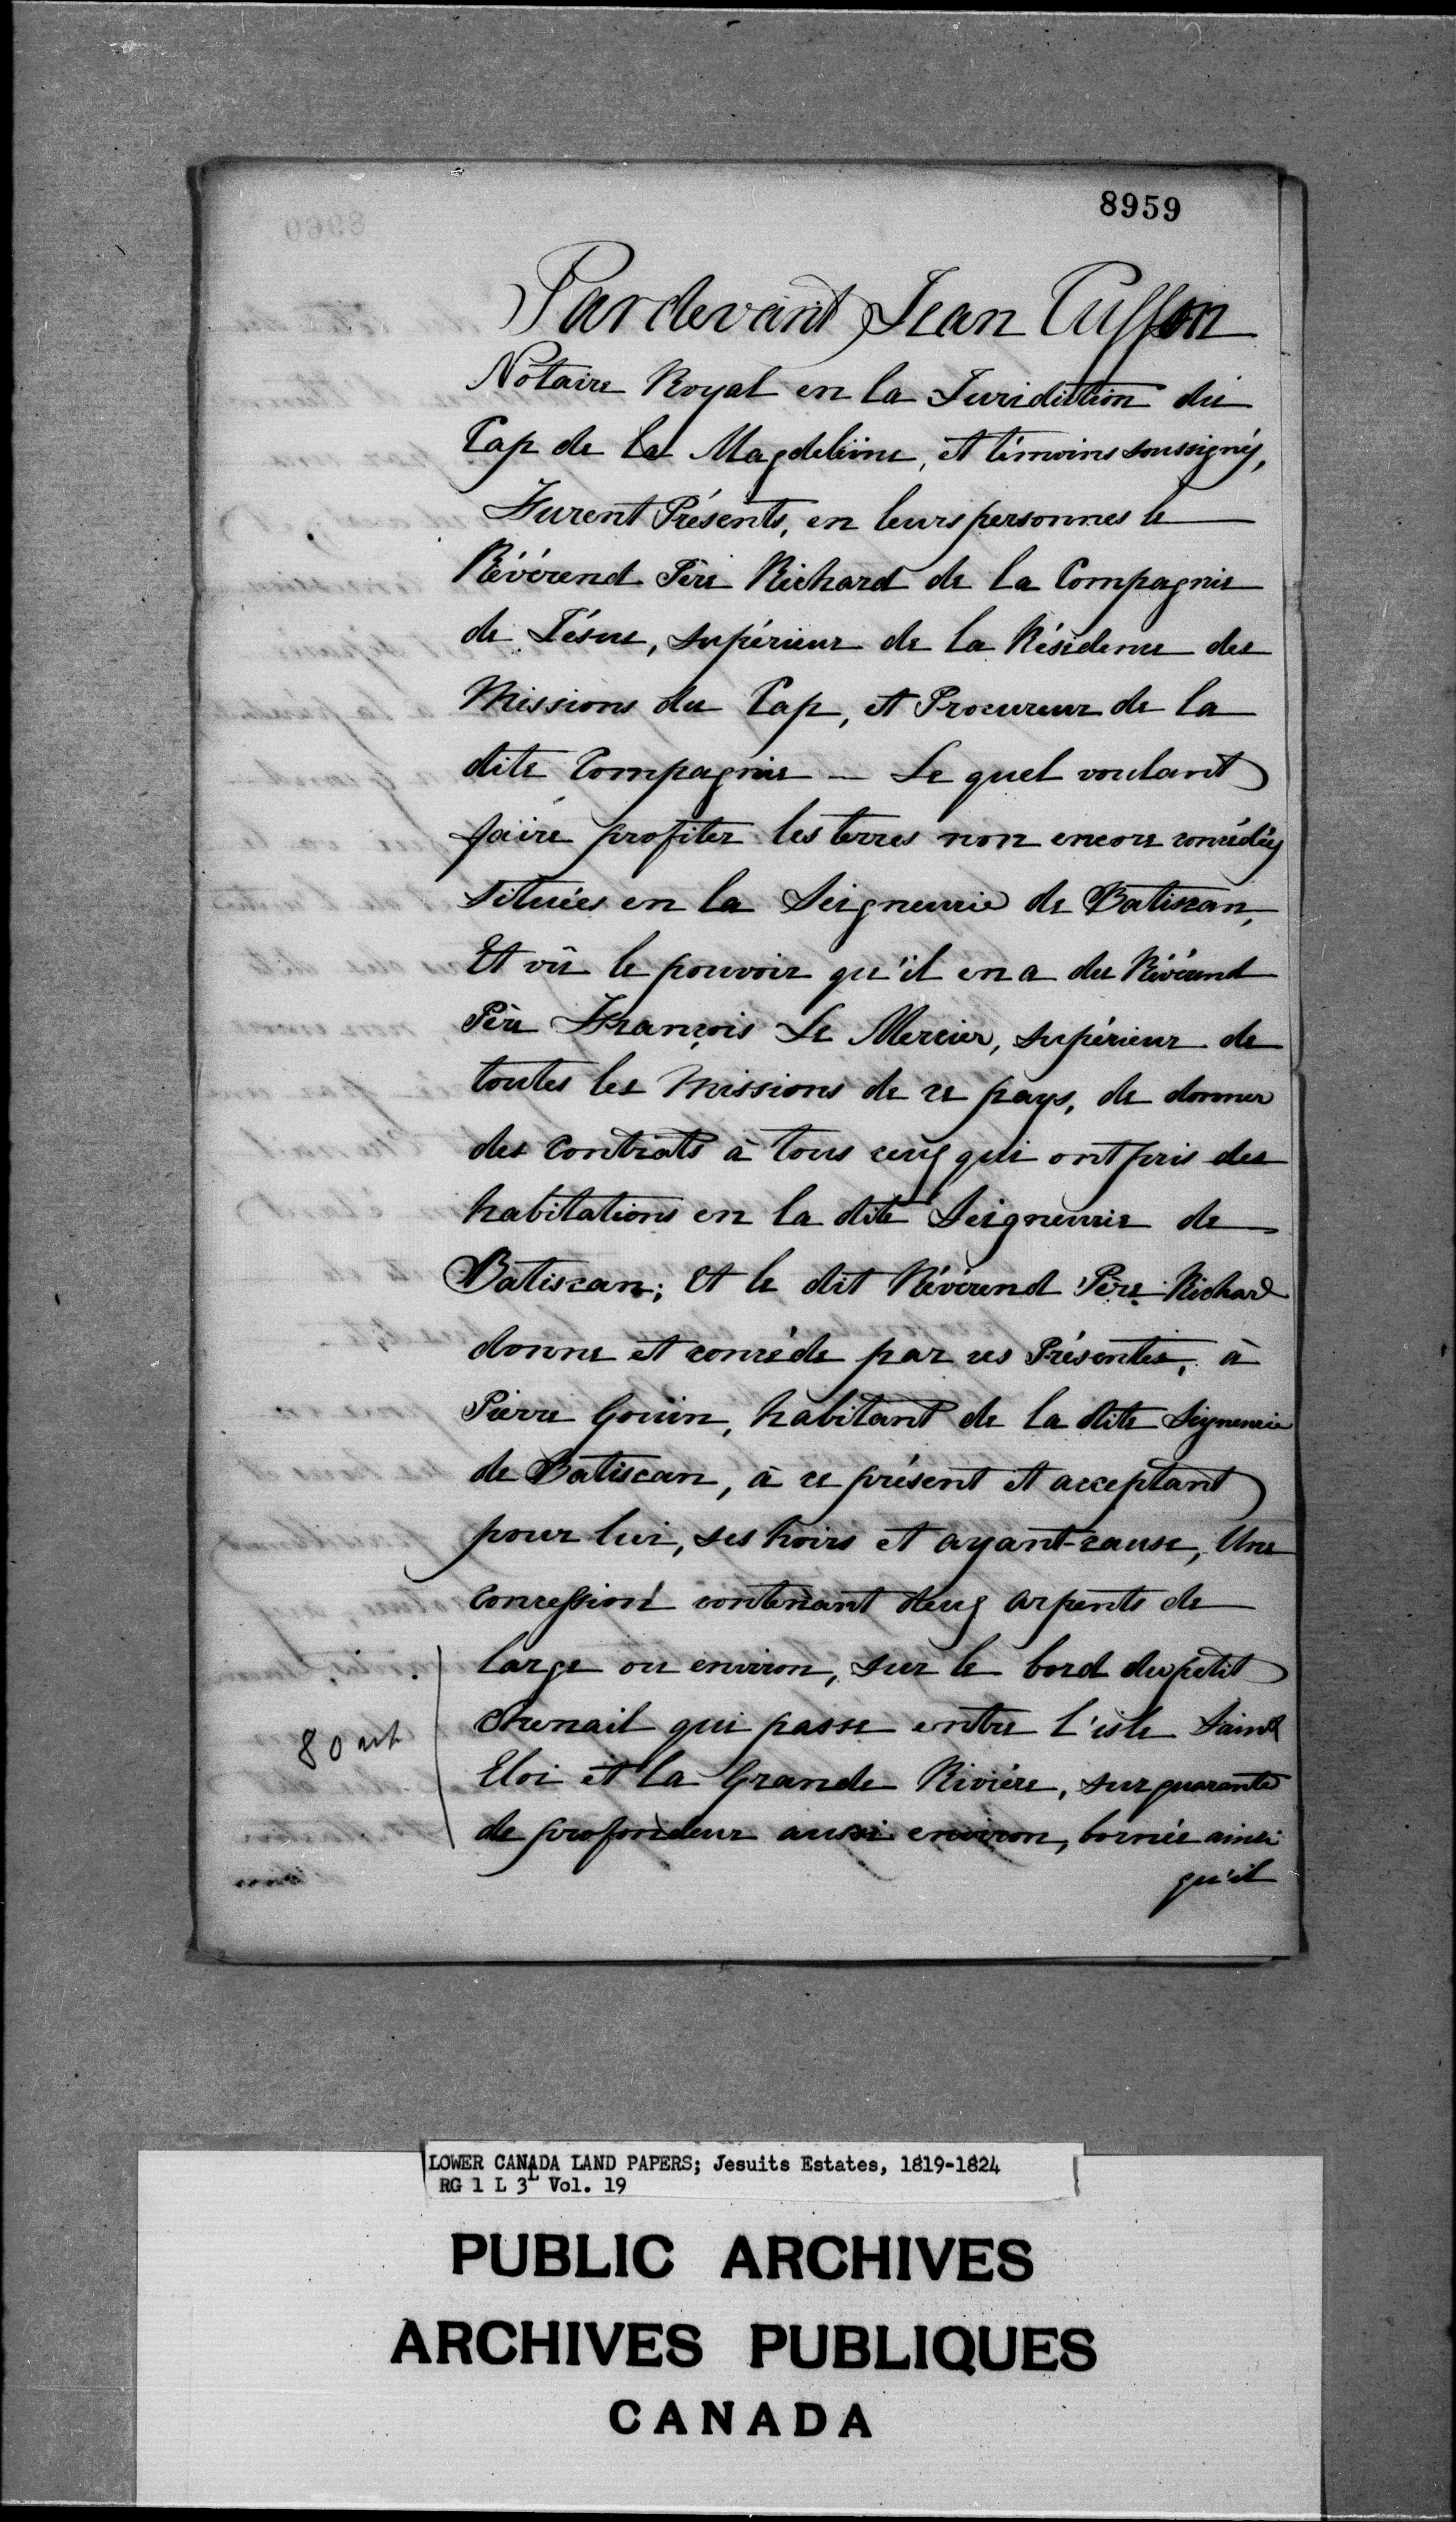 8959
Pardevant Jean Cusson
Notaire Royal en la Juridiction du
Cap de la Magdeleine, et témoins soussignés,
Furent Présents, en leurs personnes le
Révérend Père Richard de la Compagnie
de Jésus, supérieur de la Résidence des
Missions du Cap, et Procureur de la
dite Compagnie — Le quel voulant
faire profiter les terres non encore concédées
situées en la Seigneurie de Batiscan,
Et vû le pouvoir qu'il en a du Révérend
Père François Le Mercier, supérieur de
toutes les Missions de ce pays, de donner
des contrats à tous ceux qui ont pris des
habitations en la dite Seigneurie de
Batiscan; Et le dit Révérend Père Richard
donne et concède par ces Présentes, à
Pierre Gouin, habitant de la dite Seigneurie
de Batiscan, à ce présent et acceptant
pour lui, ses hoirs et ayant-cause, Une
concession contenant deux arpents de
large ou environ, sur le bord du petit
chenail qui passe entre l'isle Saint
Eloi et la Grande Rivière, sur quarante
de profondeur aussi environ, bornée ainsi
qu'il
80
LOWER CANADA LAND PAPERS; Jesuits Estates, 1819-1824
RG 1 L 3L Vol. 19
PUBLIC ARCHIVES
ARCHIVES PUBLIQUES
CANADA